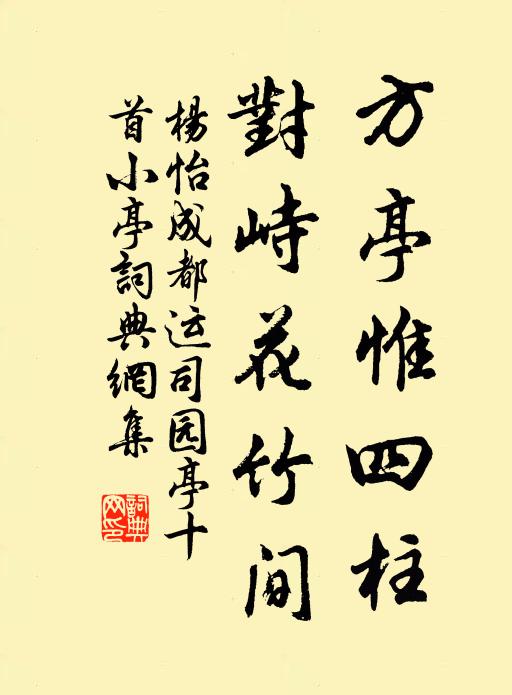 方亭惟四柱
對峙花竹間
楊怡成都运司园亭十
首小亭詞典網集
詞典網印